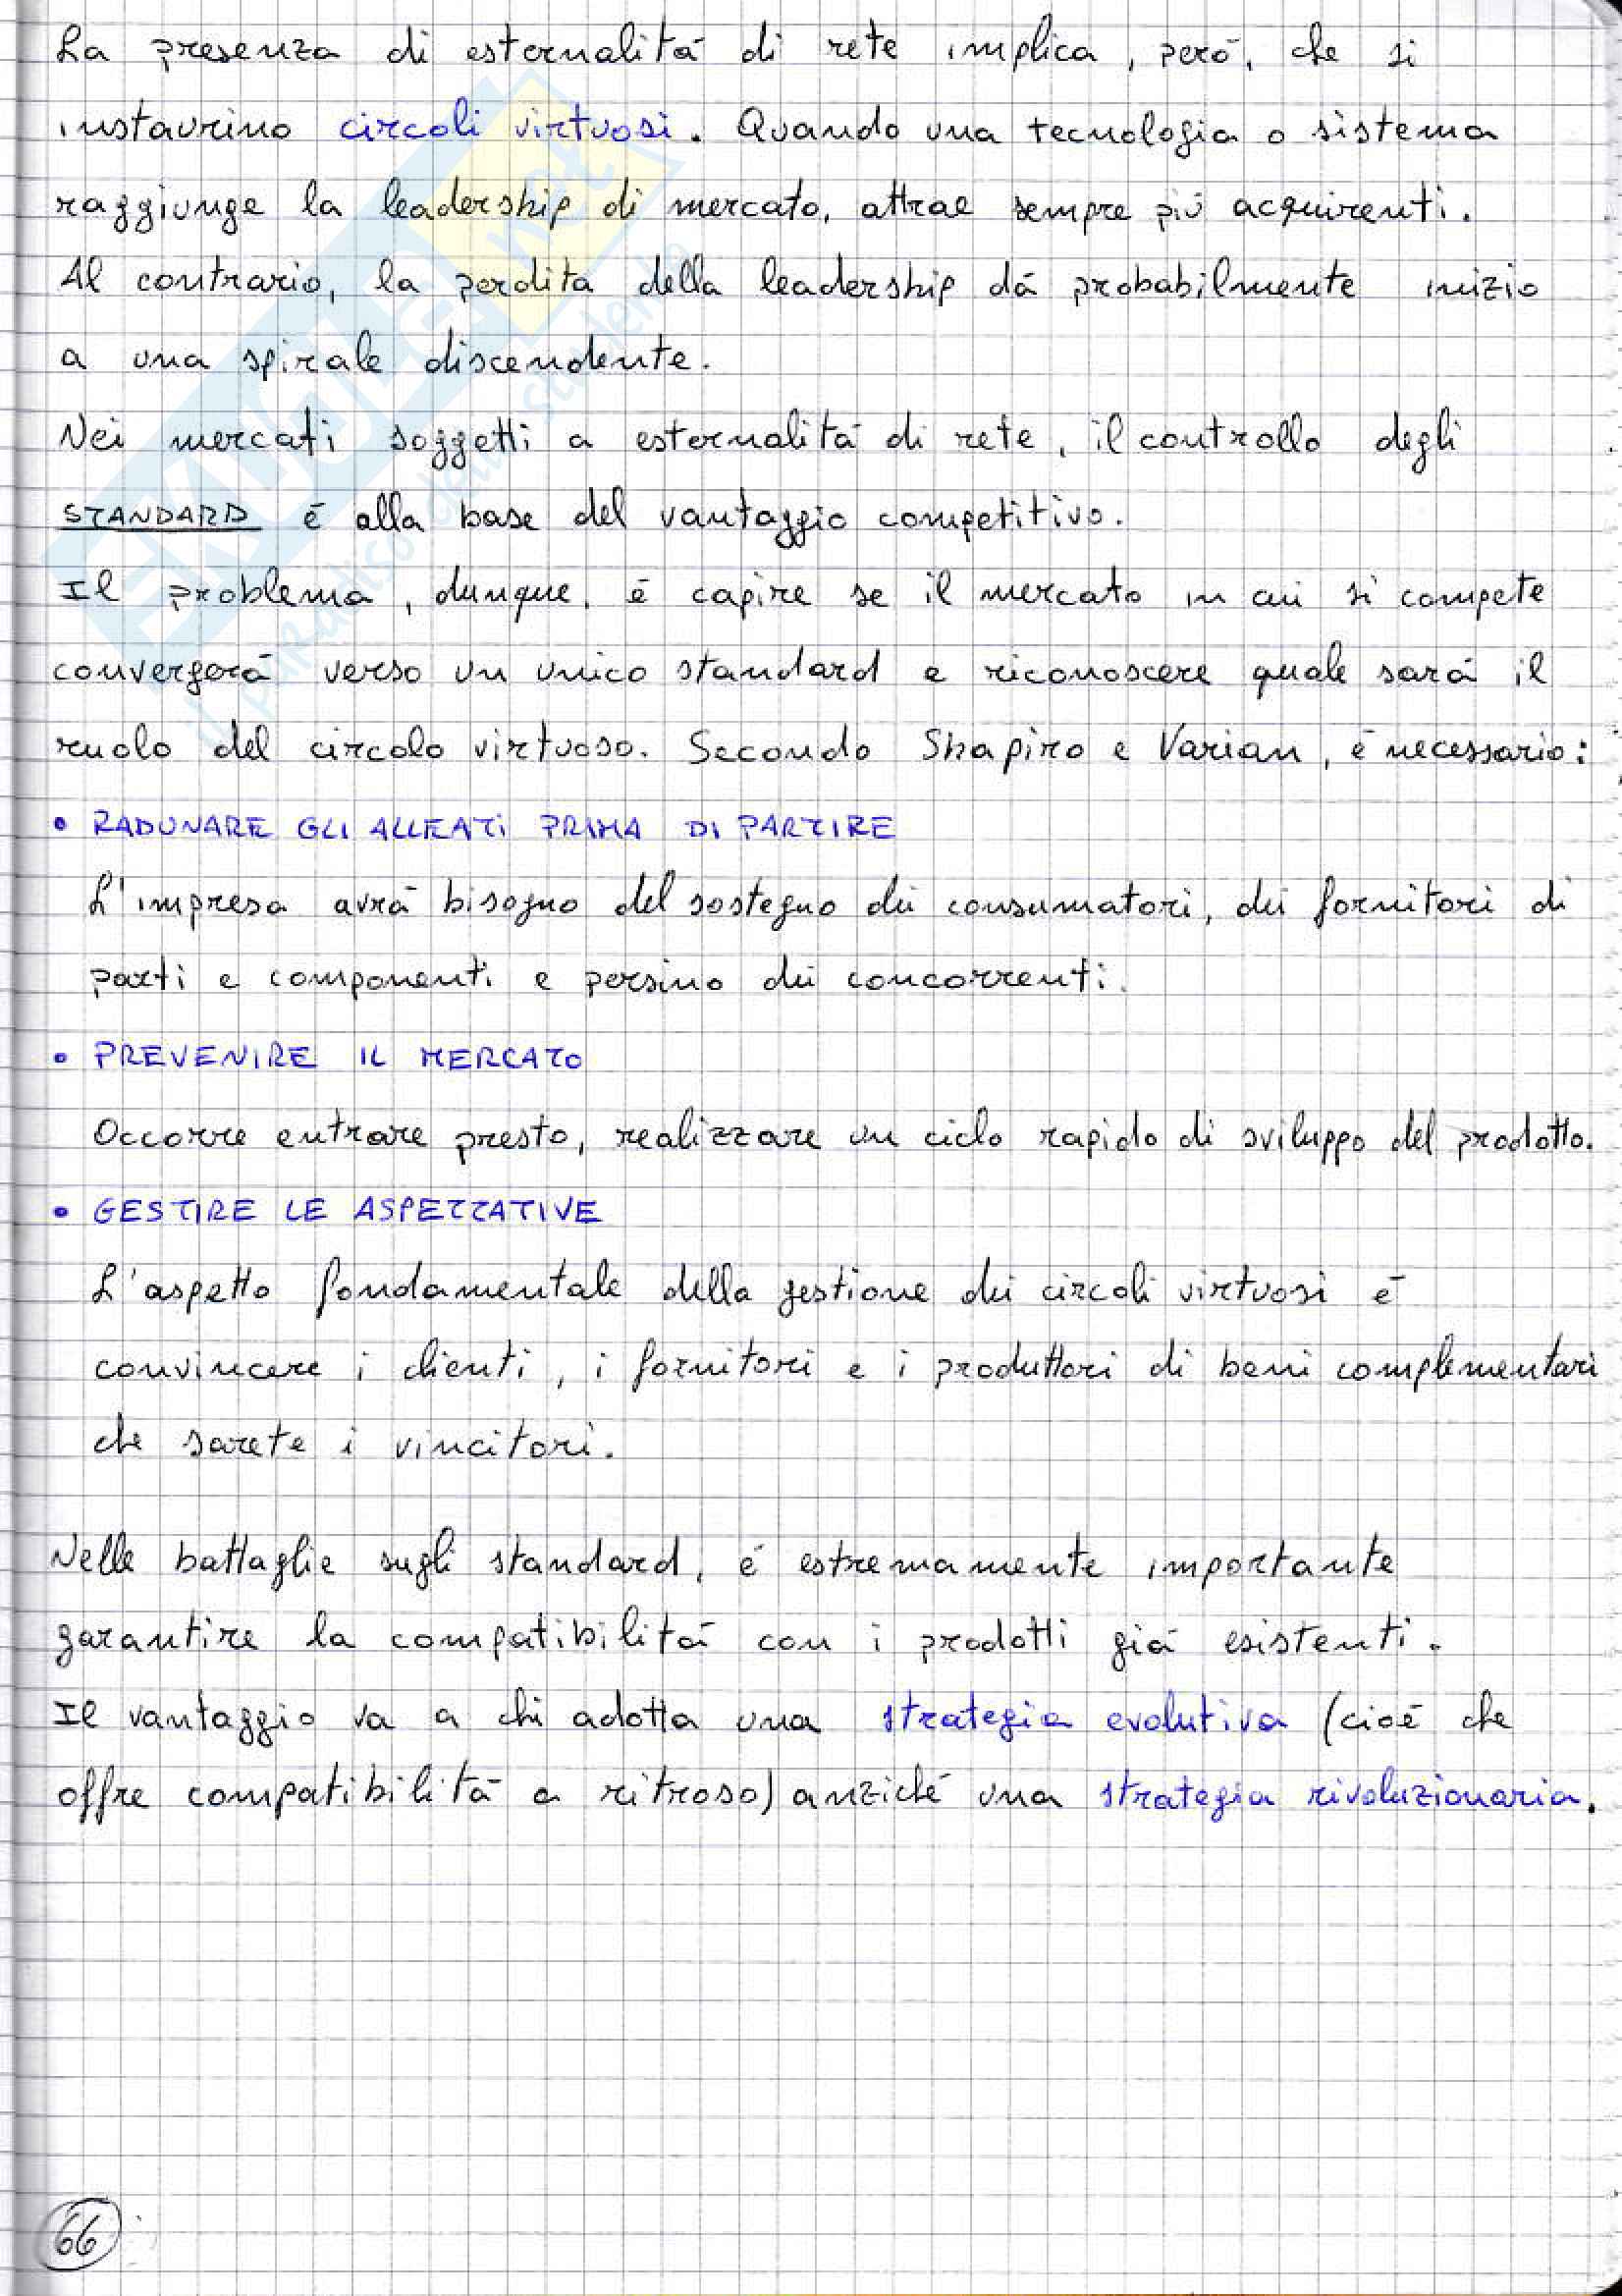 La presenza di esternalità di rete implica, però, che si
instaurino circoli virtuosi. Quando una tecnologia o sistema
raggiunge la leadership di mercato, attrae sempre più acquirenti.
Al contrario, la perdita della leadership dà probabilmente inizio
a una spirale discendente.
Nei mercati soggetti a esternalità di rete, il controllo degli
STANDARD è alla base del vantaggio competitivo.
Il problema, dunque, è capire se il mercato in cui si compete
convergerà verso un unico standard e riconoscere quale sarà il
ruolo del circolo virtuoso. Secondo Shapiro e Varian, è necessario:
• RADUNARE GLI ALLEATI PRIMA DI PARTIRE
L'impresa avrà bisogno del sostegno dei consumatori, dei fornitori di
parti e componenti e persino dei concorrenti.
• PREVENIRE IL MERCATO
Occorre entrare presto, realizzare un ciclo rapido di sviluppo del prodotto.
• GESTIRE LE ASPETTATIVE
L'aspetto fondamentale della gestione dei circoli virtuosi è
convincere i clienti, i fornitori e i produttori di beni complementari
che sarete i vincitori.
Nelle battaglie sugli standard, è estremamente importante
garantire la compatibilità con i prodotti già esistenti.
Il vantaggio va a chi adotta una strategia evolutiva (cioè che
offre compatibilità a ritroso) anziché una strategia rivoluzionaria.
66